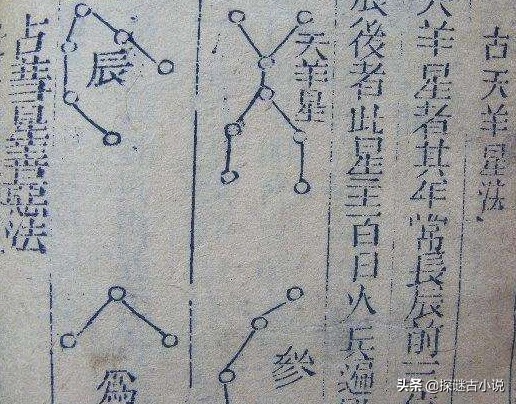 古天羊星法
天羊星者其年常長辰前三
辰後者此星主百日火兵遍
天羊星
參
辰
為
占彗星善惡法
头条 @探谜古小说